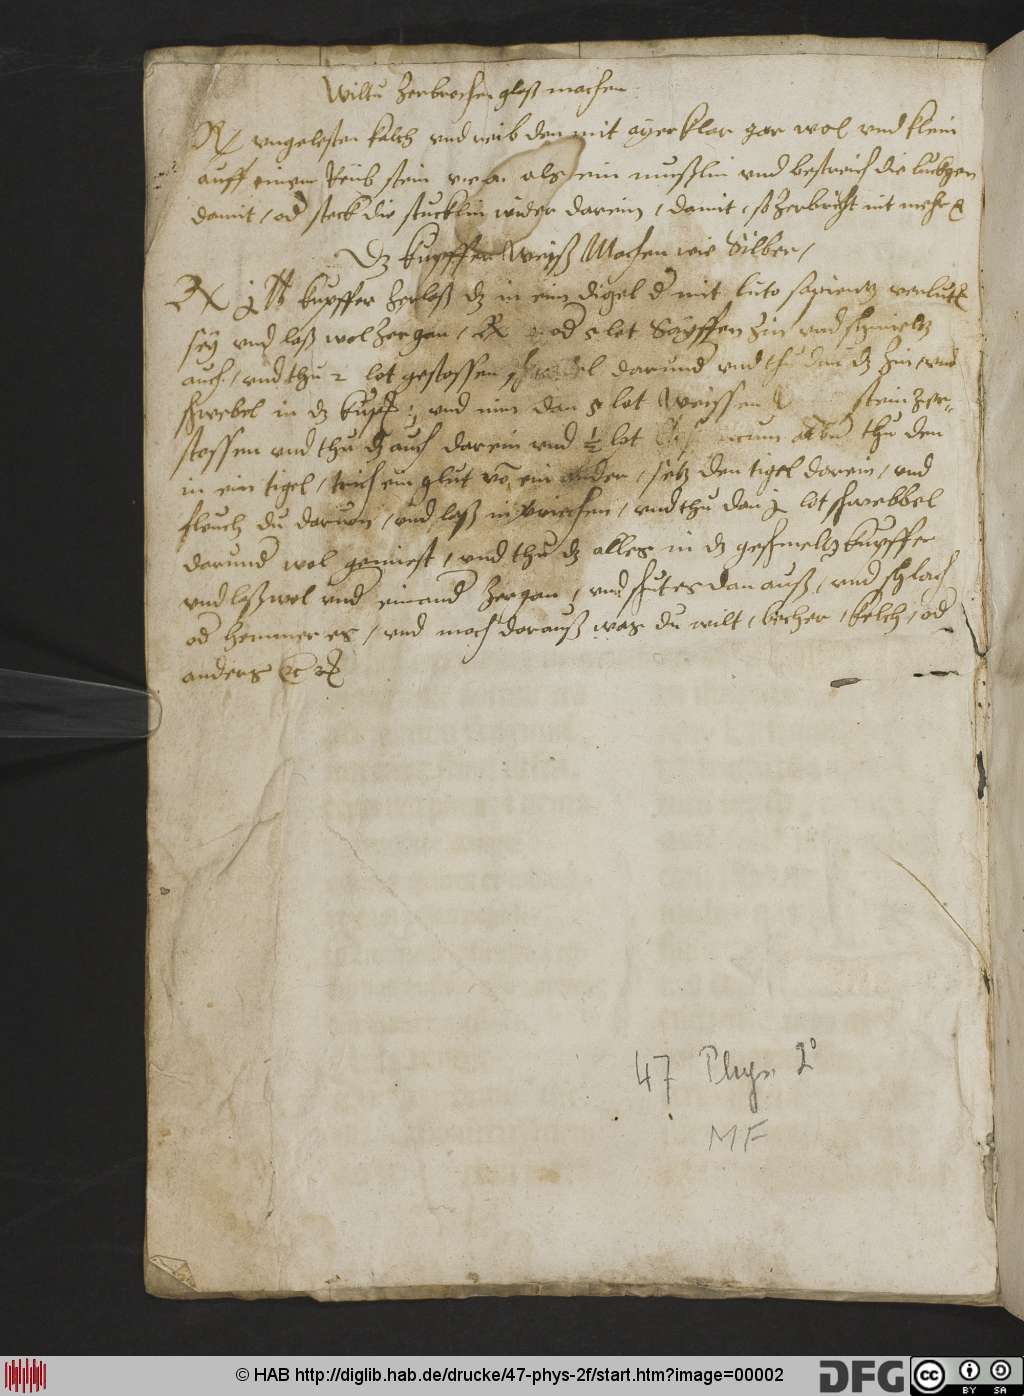 Wiltu Zerbrochen glaß machen
Rx ungelesten kalch und reib den mit ayerklar gar wol und klein
auff einem Reib stein als ein mußlin und bestreich die luckgen
damit / od steck die stucklin wider darein / damit / so Zerbricht nit mehr
Dz kupffer Weyß Machen wie Silber /
Rx j lb kupffer Zerlaß dz in ein digel d mit luto sapientz verlutt
sey und laß wol Zergan / Rx od 5 lot Sayffen Zin und schmeltz
auch / und thu 2 lot gestossen darund und thu dan dz Zin und
schwebel in dz kupf und nim dan 5 lot Weyssen stein Zer-
stossen und thu dz auch darein und ½ lot thu den
in ein tigel / ein glut vo ein ander / setz den tigel darein / und
fleuch du darvon / und laß in / und thu dan j lot schwebbel
darund wol gemist / und thu dz alles in dz geschmeltz kupffer
und laß wol und einand Zergan / und schut es dan auß / und schlach
od hemmer es / und mach darauß was du wilt / becher / kelch / od
anders
47 Phys 2°
MF
© HAB http://diglib.hab.de/drucke/47-phys-2f/start.htm?image=00002
DFG
cc BY SA